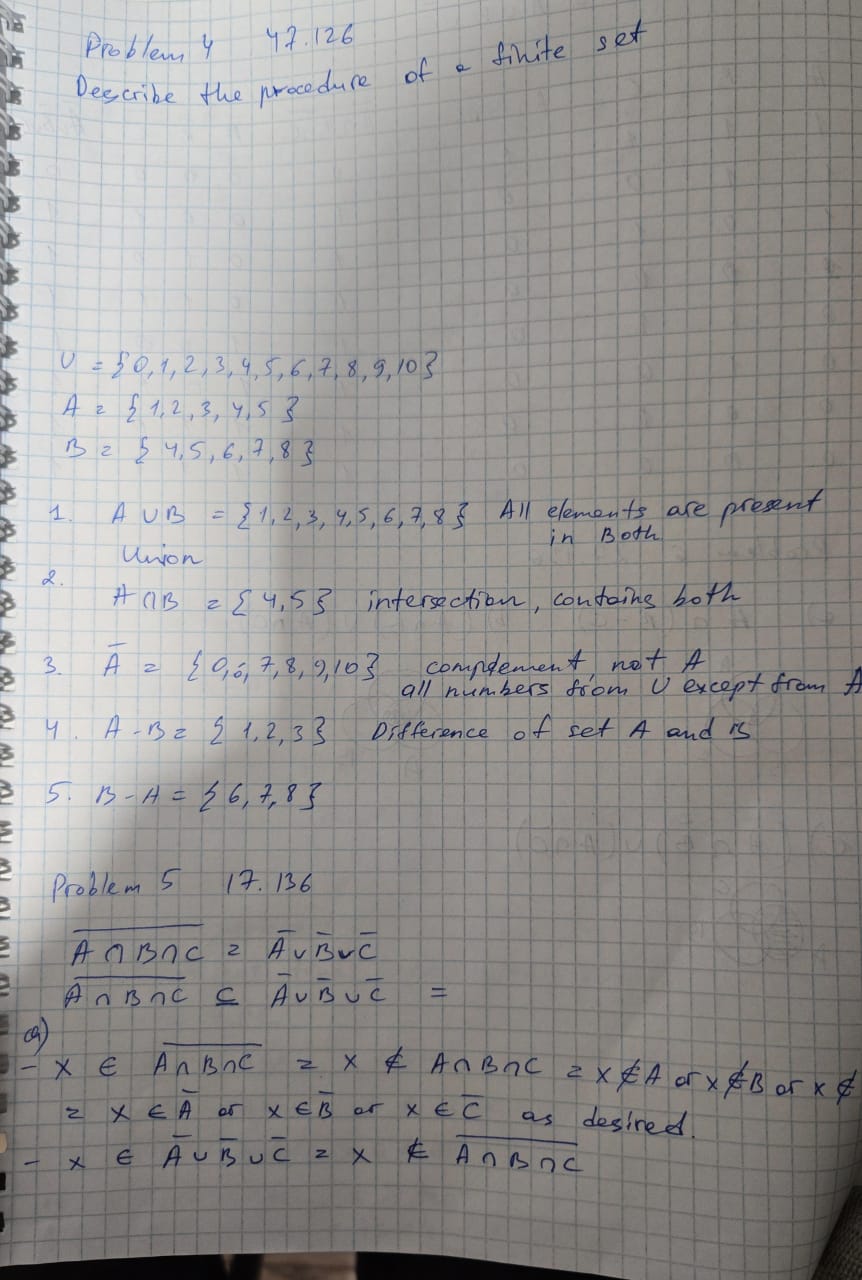 Problem 4 47.126
Describe the procedure of a finite set
U = {0,1,2,3,4,5,6,7,8,9,10}
A = {1,2,3,4,5}
B = {4,5,6,7,8}
1. A ∪ B = {1,2,3,4,5,6,7,8} All elements are present
in Both
Union
2.
A ∩ B = {4,5} intersection, contains both
3. A̅ = {0,6,7,8,9,10} complement, not A
all numbers from U except from A
4. A - B = {1,2,3} Difference of set A and B
5. B - A = {6,7,8}
Problem 5 17.136
\overline{A ∩ B ∩ C} = A̅ ∪ B̅ ∪ C̅
\overline{A ∩ B ∩ C} ⊆ A̅ ∪ B̅ ∪ C̅ =
a)
- x ∈ \overline{A ∩ B ∩ C} = x ∉ A ∩ B ∩ C = x ∉ A or x ∉ B or x ∉
= x ∈ A̅ or x ∈ B̅ or x ∈ C̅ as desired.
- x ∈ A̅ ∪ B̅ ∪ C̅ = x ∉ \overline{A ∩ B ∩ C}